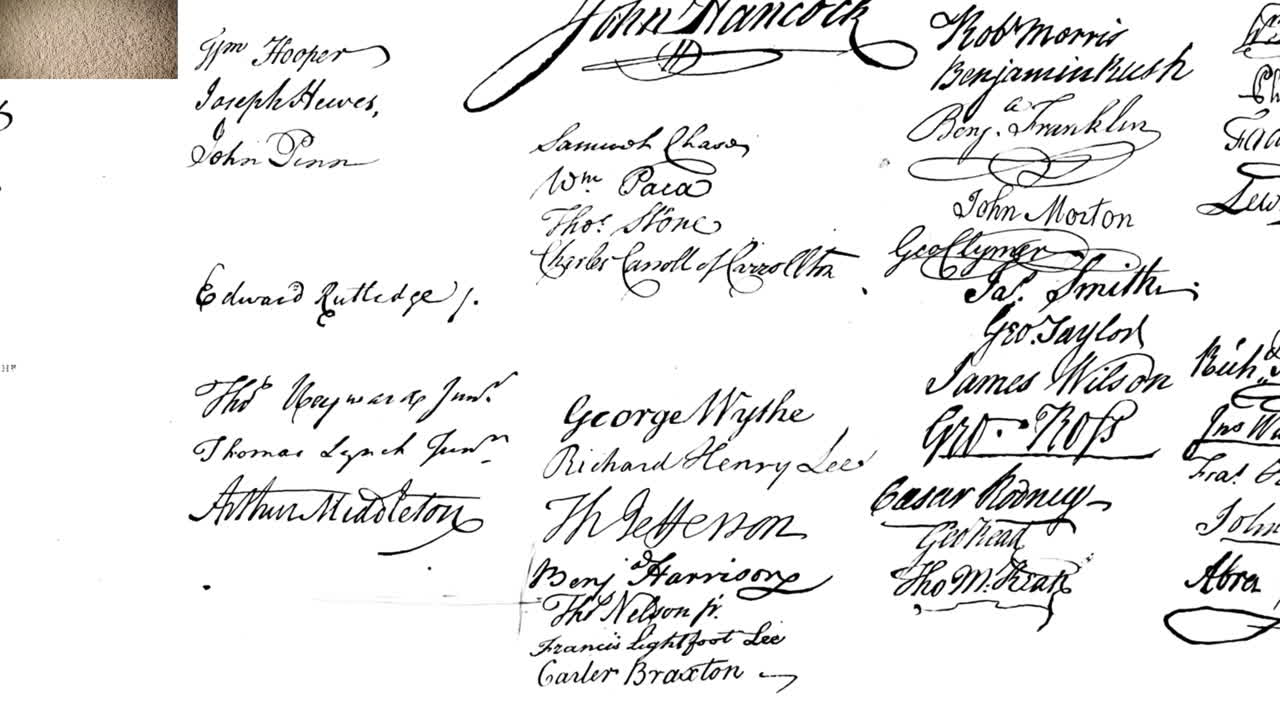 Wm Hooper
Joseph Hewes,
John Penn
Edward Rutledge /.
Thos Heyward Junr.
Thomas Lynch Junr.
Arthur Middleton
John Hancock
Samuel Chase
Wm. Paca
Thos. Stone
Charles Carroll of Carrollton
George Wythe
Richard Henry Lee
Th Jefferson
Benj Harrison
Thos Nelson jr.
Francis Lightfoot Lee
Carter Braxton
Robt Morris
Benjamin Rush
Benja. Franklin
John Morton
Geo Clymer
Jas. Smith
Geo. Taylor
James Wilson
Geo. Ross
Caesar Rodney
Geo Read
Tho M:Kean
Lew
Rich.
Jno Wi
Fras.
John
Abra